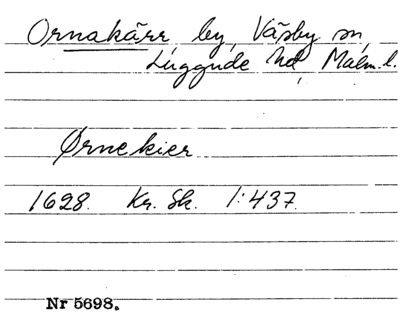 Ornakärr by, Väsby sn,
Luggude hd, Malm. l.
Ørnekier
1628. Kr. Sk. 1:437.
Nr 5698.